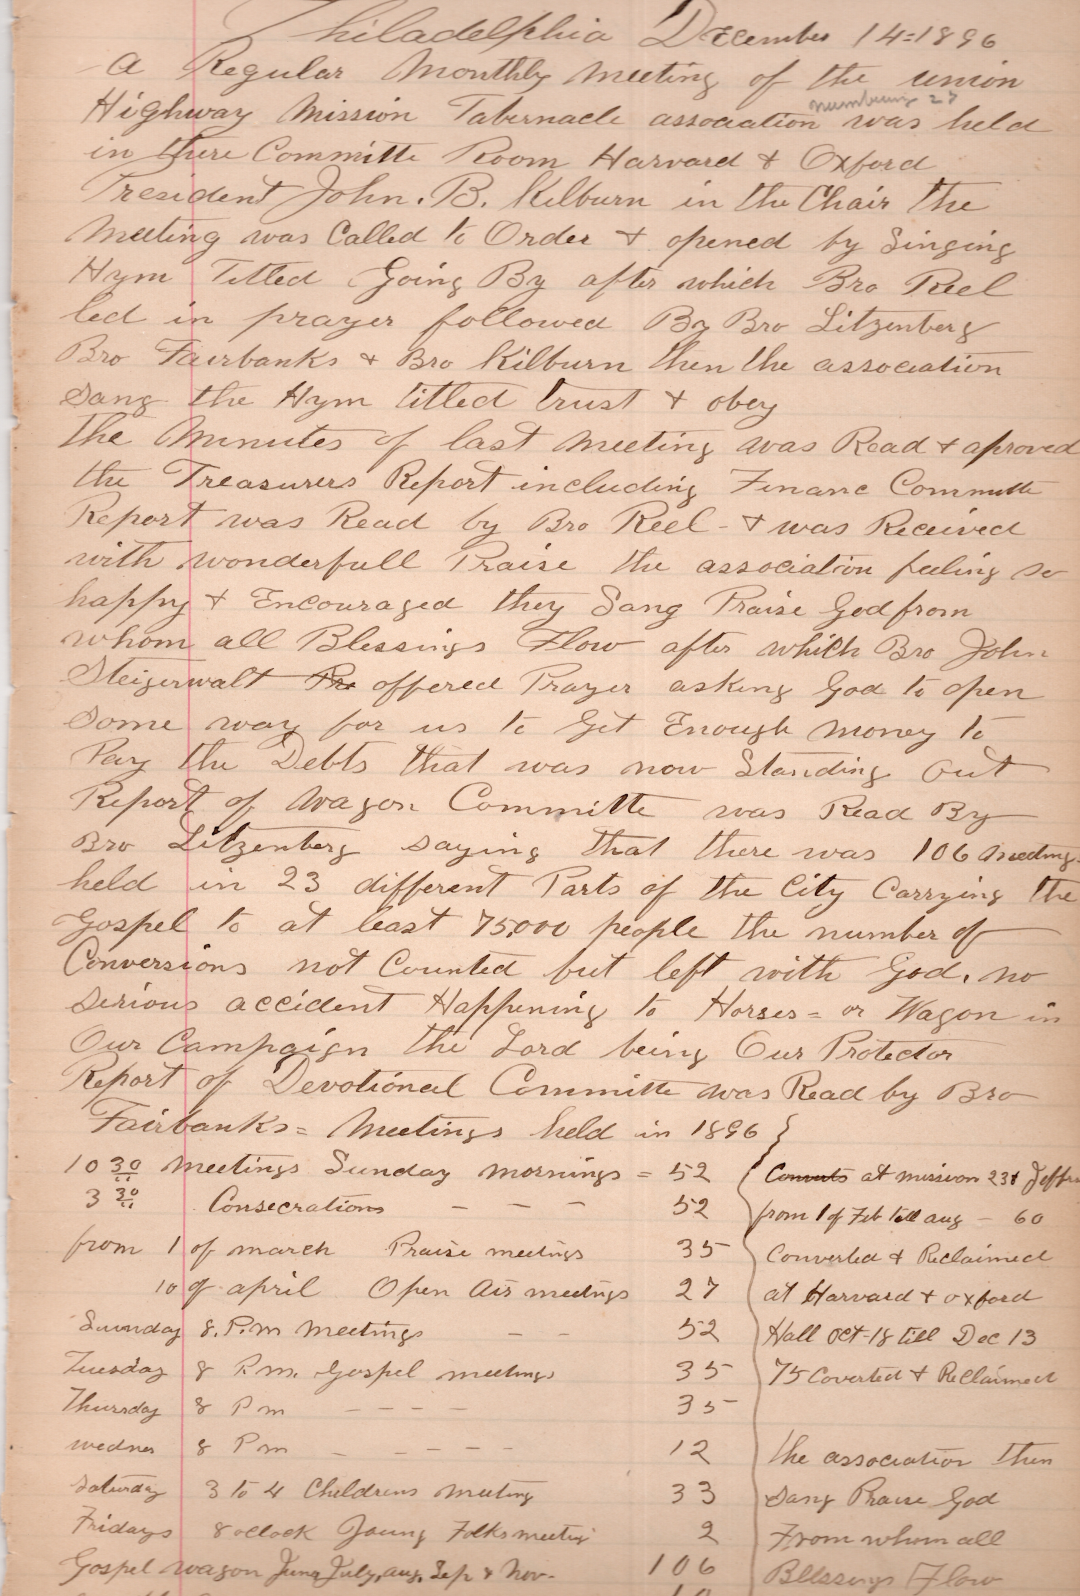 Philadelphia December 14=1896
A Regular Monthly Meeting of the union
numbering 27
Highway Mission Tabernacle association was held
in there Committe Room Harvard & Oxford
President John. B. Kilburn in the Chair the
Meeting was Called to Order & opened by Singing
Hym Titled Going By after which Bro Reel
led in prayer followed By Bro Litzenberg
Bro Fairbanks & Bro Kilburn then the association
Sang the Hym titled trust & obey
the Minutes of last Meeting was Read & aproved
the Treasurers Report including Financ Committe
Report was Read by Bro Reel - & was Received
with wonderfull Praise the association feeling so
happy & Encouraged they Sang Praise God from
whom all Blessings Flow after which Bro John
Steigerwalt Pra offered Prayer asking God to open
Some way for us to Get Enough Money to
Pay the Debts that was now Standing Out
Report of Wagon Committe was Read By
Bro Litzenberg saying that there was 106 meetings
held in 23 different Parts of the City Carrying the
Gospel to at least 75,000 people the number of
Conversions not Counted but left with God. no
serious accident Happening to Horses = or Wagon in
Our Campaign the Lord being Our Protector
Report of Devotional Committe was Read by Bro
Fairbanks = Meetings held in 1896 }
10 30 Meetings Sunday Mornings = 52
3 30 Consecrations - - - 52
from 1 of march Praise meetings 35
10 of april Open Air meetings 27
Sunnday 8. P.m Meetings - - 52
Tuesday 8 P.m. Gospel meetings 35
Thursday 8 Pm - - - - 35
wednes 8 Pm - - - - - 12
Saturday 3 to 4 Childrens Meeting 33
Fridays 8 oclock Young Folks meetin 2
Gospel wagon June July, aug, Sep & Nov. 106
Converts at mission 23 & Jeffr
from 1 of Feb till aug - 60
Converted & Reclaimed
at Harvard & oxford
Hall Oct-18 till Dec 13
75 Coverted & Reclaimed
the association then
sang Praise God
From whom all
Bllssings Flow